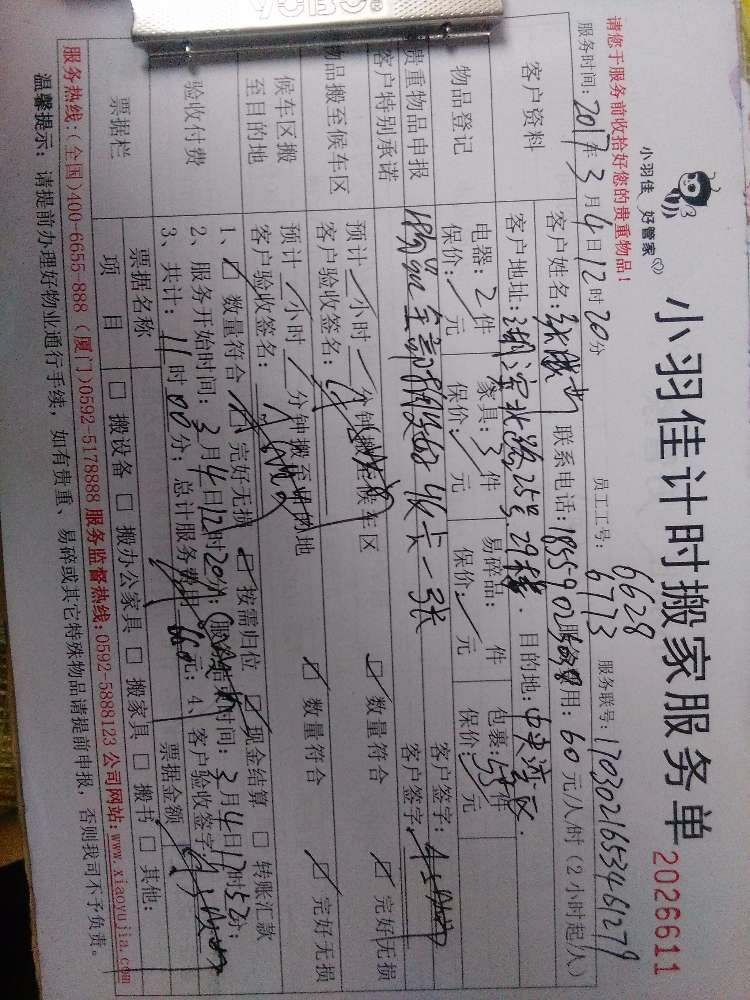 小羽佳计时搬家服务单
2026611
小羽佳 好管家
员工工号: 6628
6773
服务联号: 1703021653461279
请您于服务前收拾好您的贵重物品!
服务时间: 2017年3月4日12时20分
客户资料
客户姓名: 联系电话: 服务费用: 60元/人/时(2小时起/人)
客户地址: 湖滨北路25号29楼. 目的地: 中央湾区.
物品登记
电器: 2件 家具: 3件 易碎品: 件 包裹: 件
保价: / 元 保价: / 元 保价: / 元 保价: / 元
贵重物品申报
客户特别承诺
客户签字:
客户签字:
物品搬至候车区
预计 / 小时 / 分钟搬至候车区 数量符合 完好无损
客户验收签名:
候车区搬
至目的地
预计 / 小时 / 分钟搬至目的地 数量符合 完好无损
客户验收签名:
验收付费
1、 数量符合 完好无损 按需归位 现金结算 转账汇款
2、服务开始时间: 3月4日12时20分; 服务结束时间: 3月4日17时52分;
3、共计: 11时00分; 总计服务费用 660 元; 4、客户验收签字
票据栏
票据名称 票据金额
项目 搬设备 搬办公家具 搬家具 搬书 其他:
服务热线:(全国)400-6655-888 (厦门)0592-5178888 服务监督热线:0592-5888123 公司网站:www.xiaoyujia.com
温馨提示: 请提前办理好物业通行手续, 如有贵重、易碎或其它特殊物品请提前申报, 否则我司不予负责。